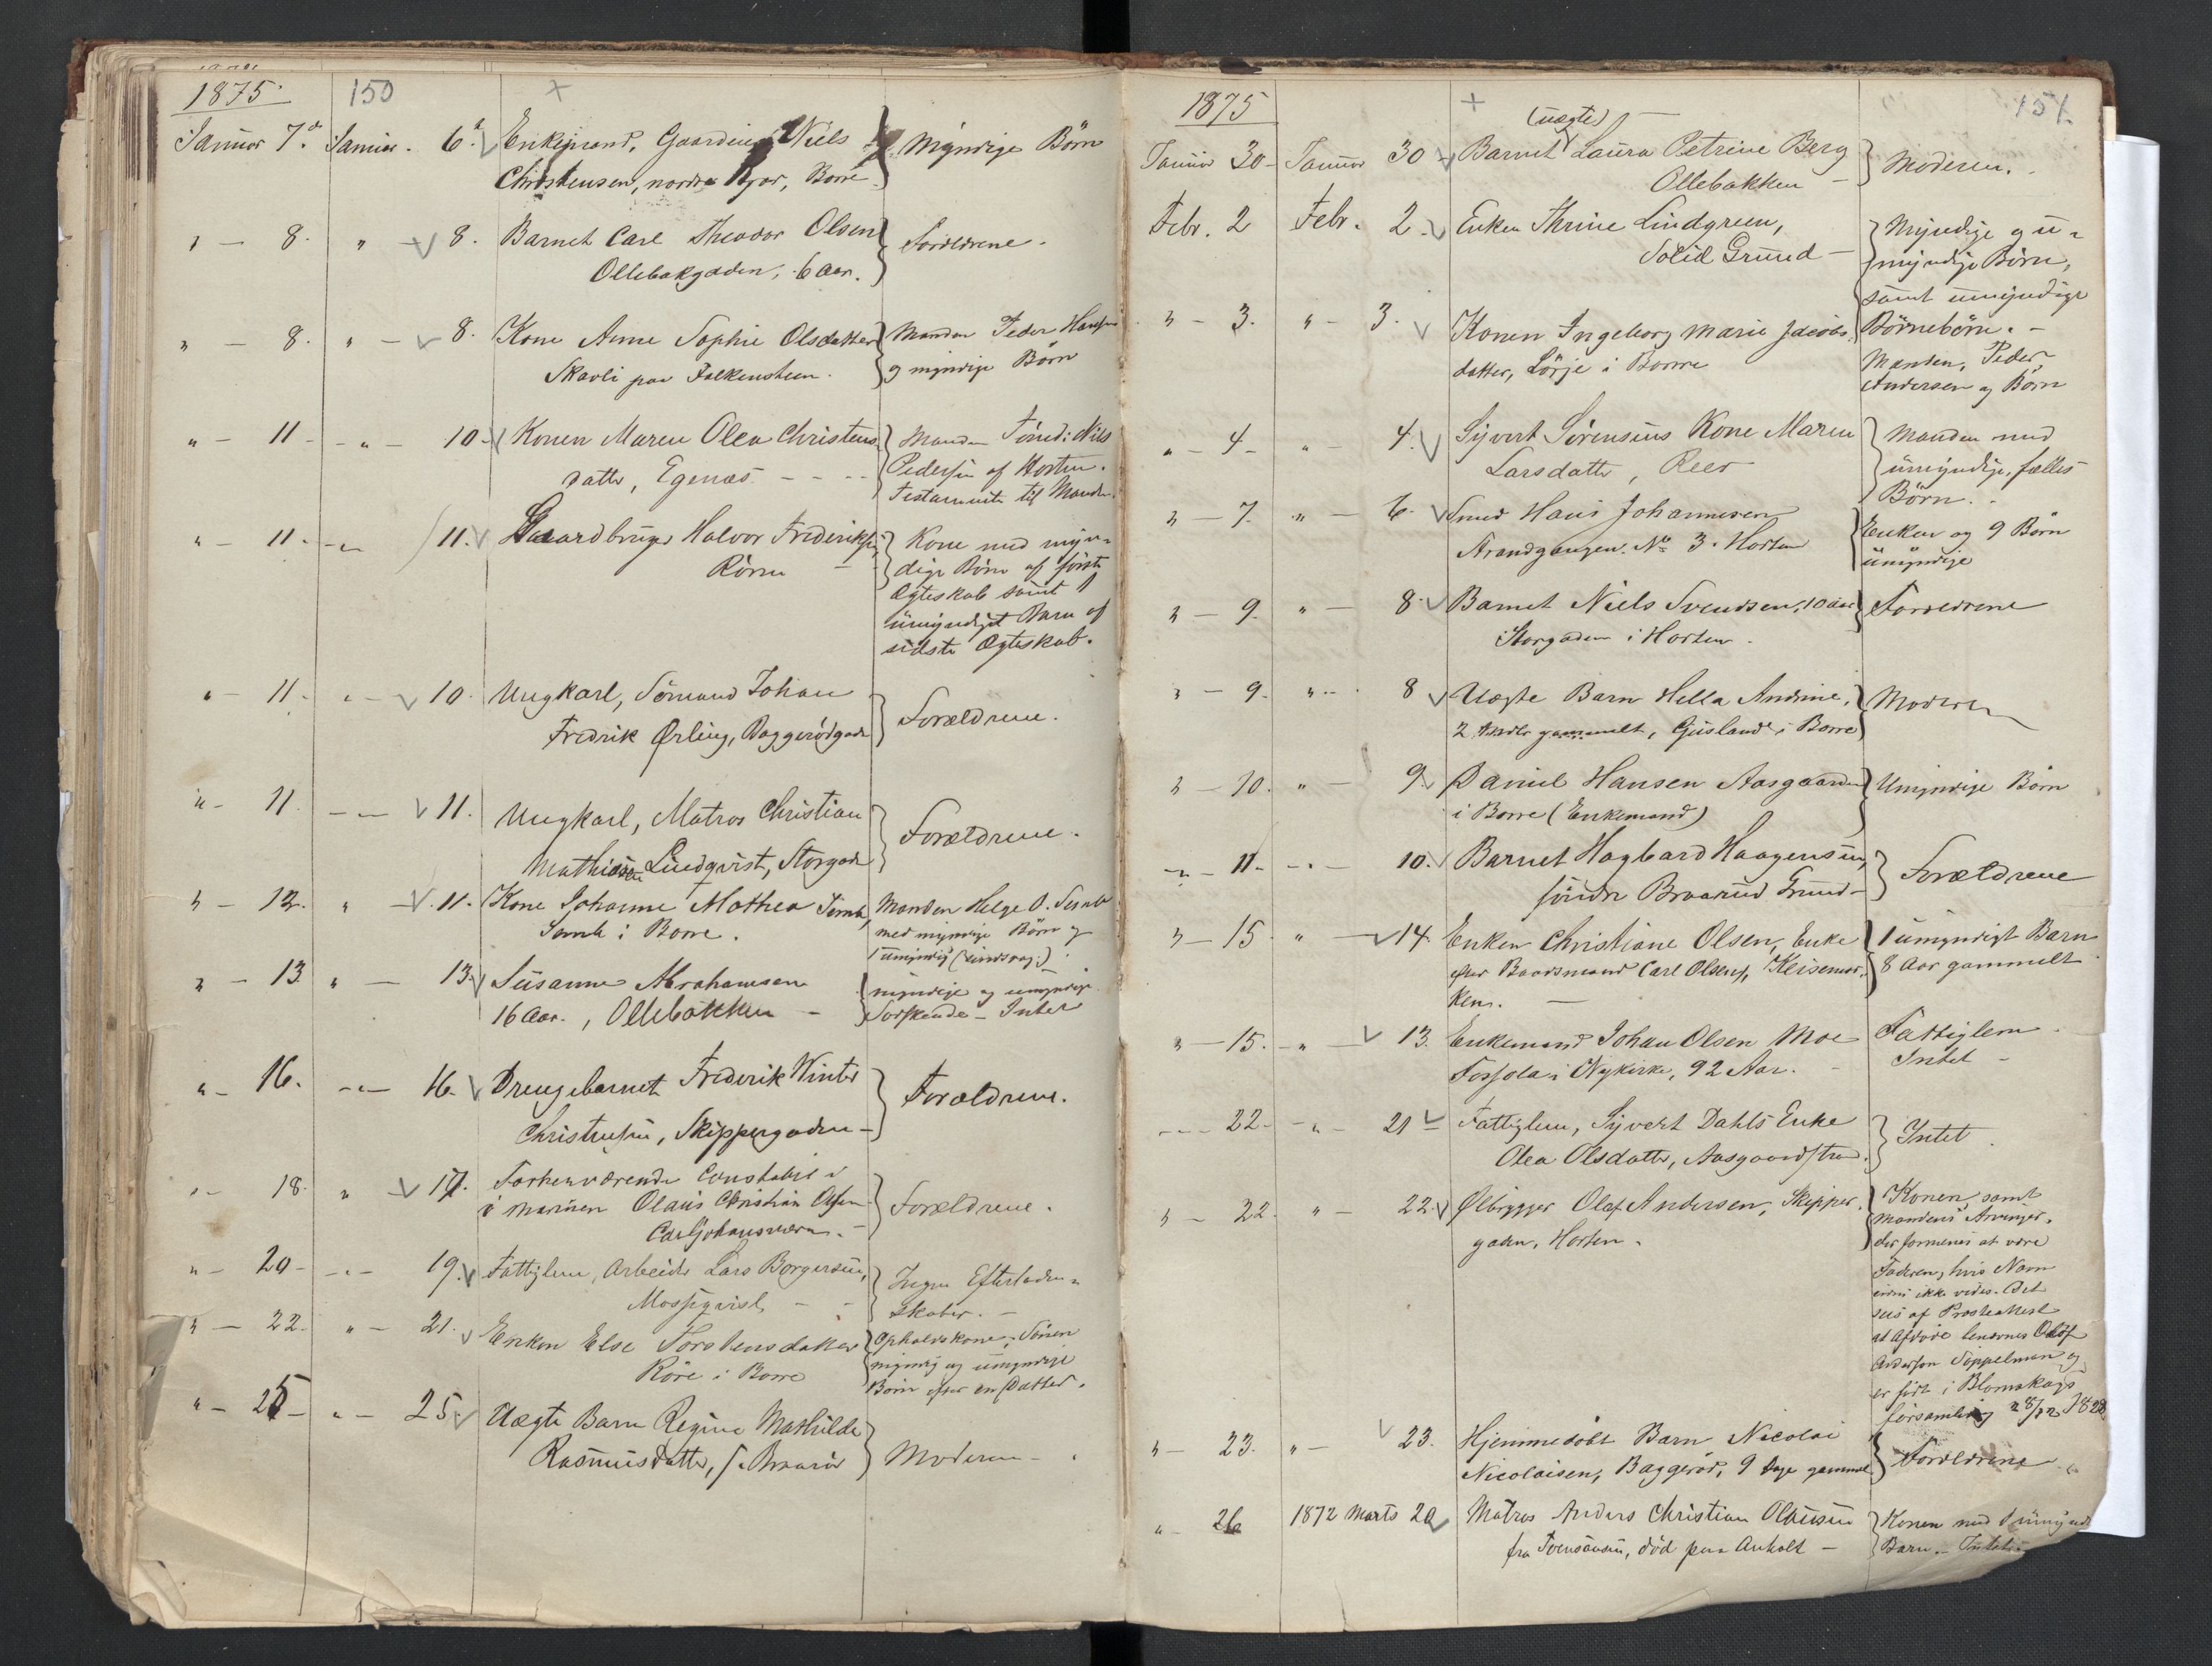 1875. 150 +
Januar 7de Januar. 6te Enkemand, Gaardbruger Niels Myndige Børn
Christensen, nordre Bjor, Borre
" - 8. " - 8. Barnet Carl Theodor Olsen Forældrene.
Ollebakgaden, 6 Aar.
" - 8. " - 8. Kone Anne Sophie Olsdatter Manden Peder Hansen
Skavli paa Falkensteen. og myndige Børn
" - 11 - " - 10. Konen Maren Olea Christens Manden Tømd: Nils
datter, Egenæs - - Pedersen af Horten.
Testamente til Manden.
" - 11. - " 11. Gaardbruger Halvor Frederiksen Kone med myn-
Rørne - dige Børn af første
Ægteskab samt 1
umyndigt Barn af
sidste Ægteskab.
" - 11. " - 10. Ungkarl, Sømand Johan Forældrene.
Fredrik Ørling, Baggerødgade
" - 11. - " - 11. Ungkarl, Matros Christian Forældrene.
Mathisen Lindqvist, Storgade
" - 12. " - 11. Kone Johanne Mathea Manden Helge O.
Samb i Borre. med myndige Børn og
1 umyndig
" - 13. " - 13. Susanne Abrahamsen myndige og umyndige
16 Aar., Ollebakken - Søskende - Intet
" - 16. - " - 16. Drengebarnet Frederik Winter Forældrene.
Christensen, Skippergaden -
" - 18. " - 17. Forhenværende Constabel Forældrene.
i Marinen Olaus Christian Olsen
Carljohansværn. -
" - 20 - - " - 19. Fattiglem, Arbeider Lars Borgersen, Ingen Efterladen-
- - skaber. -
" - 22. " - 21. Enken Else Torstensdatter Opholdskone, Sønen
Røre i Borre myndig og umyndige
Børn efter en Datter.
" - 25 - " - 25. Uægte Barn Regine Mathilde Moderen - .
Rasmusdatter, S. Braarød
1875 + 151.
(uægte) -
Januar 30 - Januar 30 Barnet Laura Petrine Berg Moderen.
Ollebakken -
Febr. 2 Febr. 2. Enken Thrine Lindgreen, Myndige og u-
Solid Grund - myndige Børn,
samt umyndige
" - 3. " - 3. Konen Ingeborg Marie Jacobs- Børnebørn. -
datter, Lørje i Borre Manden, Peder
Andersen og Børn
" - 4 - " 4. Syvert Sørensens Kone Maren Manden med
Larsdatter, Reer umyndige, fælles
Børn.
" - 7. " - 6. Smed Hans Johannesen Enken og 9 Børn
Strandgangen No 3. Horten umyndige
" - 9. " - 8. Barnet Niels Svendsen, 10 Aar Forældrene
Storgaden i Horten.
" - 9. " - 8 Uægte Barn Hella Andrine, Moderen
2 gammelt, i Borre
" - 10. " - 9. Daniel Hansen Aasgaarden Umyndige Børn
i Borre (Enkemand)
" - 11. - " - 10. Barnet Hagbard Haagensen, Forældrene
søndre Braarud Grund -
" - 15 " - 14. Enken Christiane Olsen, Enke 1 umyndigt Barn
efter Baadsmand Carl Olsen, Keisemar- 8 Aar gammelt
ken. -
" - 15. - " - 13. Enkemand Johan Olsen Moe Fattiglem.
i Nykirke, 92 Aar. - Intet -
" - 22. - " - 21 Fattiglem, Syvert Dahls Enke Intet.
Olea Olsdatter, Aasgaardstrand.
" - 22. " - 22. Ølbrygger Olaf Andersen, Skipper- Konen samt
gaden, Horten. Mandens Arvinger,
der formenes at være
Faderen, hvis Navn
endnu ikke vides. Det
sees af Presteattest
at Afdøde benævnes Olof
Anderson Sippelman og
er født i Blomskogs
forsamling 28/12 1828
" - 23. " - 23. Hjemmedøbt Barn Nicolai Forældrene
Nicolaisen, Baggerød, 9 Dage gammel
" - 26 1872 Marts 20 Matros Anders Christian Olausen Konen med 1 umyndigt
fra, død paa Anholt - Barn. - Intet. -